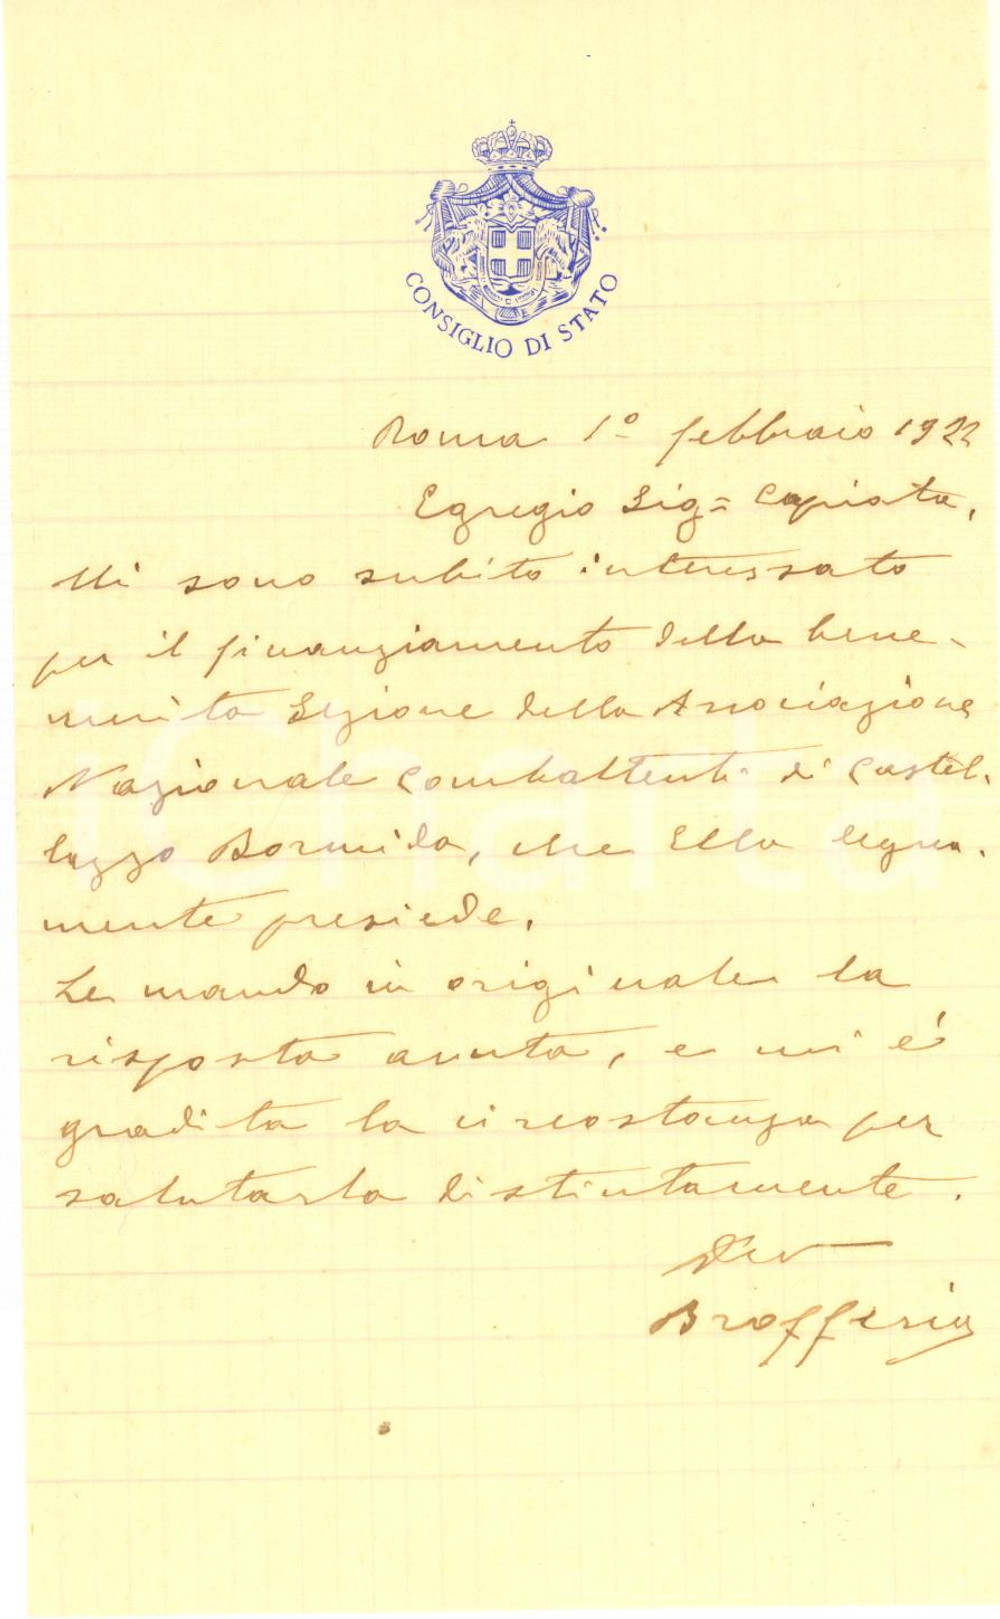 CONSIGLIO DI STATO
Roma 1º febbraio 1922
Egregio Sig= Capriata,
Mi sono subito interessato
per il finanziamento della bene-
merita Sezione della Associazione
Nazionale Combattenti di Castel-
lazzo Bormida, che Ella degna-
mente presiede.
Le mando in originale la
risposta avuta, e mi è
gradita la circostanza per
salutarla distintamente.
Dev
Brofferio
Charta